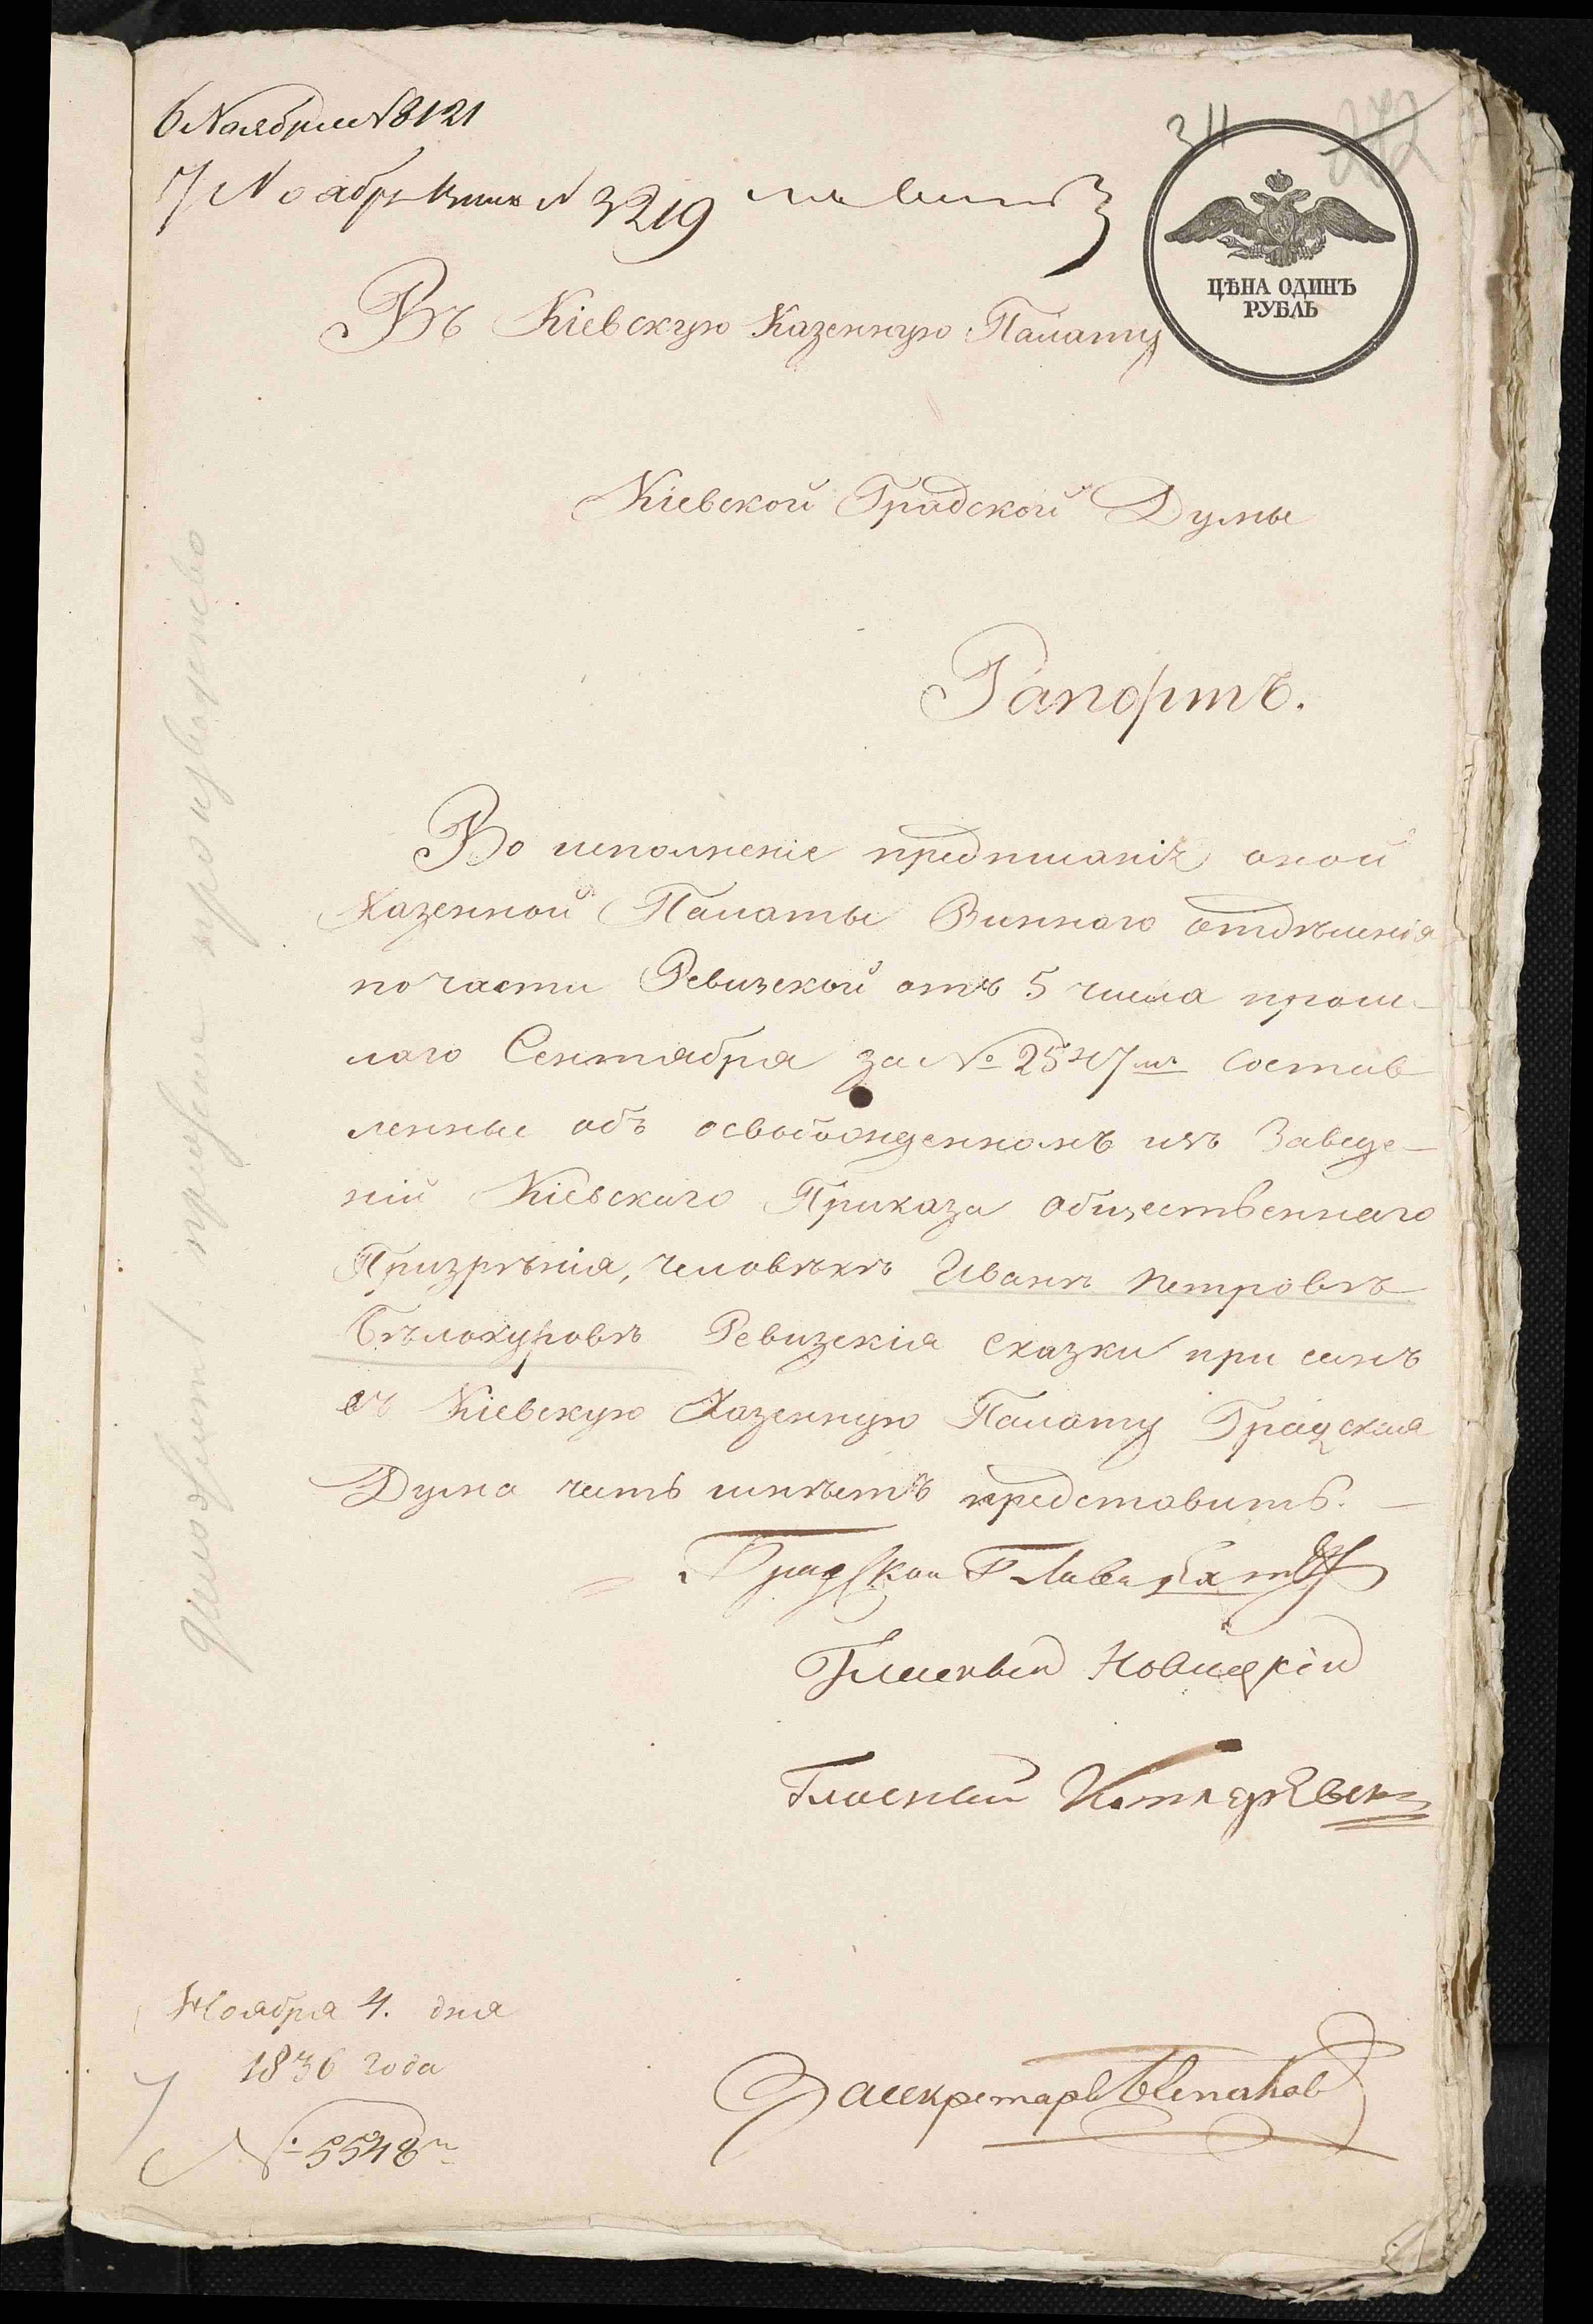 6 Ноября № 8121
7 Ноабр № 3219
311
272
ЦѢНА ОДИНЪ
РУБЛЬ
Въ Кіевскую Казенную Палату
Кіевской Градской Думы
Рапортъ.
Во исполненіе предписанія оной
Казенной Палаты Виннаго отдѣленія
по части Ревизской отъ 5 числа прош-
лаго Сентября за № 2547мъ состав
ленные объ освобожденномъ изъ Заведе-
ній Кіевскаго Приказа общественнаго
Призрѣнія, человѣкѣ Иванѣ Петровѣ
Бѣлокуровѣ Ревизскія сказки при семъ
въ Кіевскую Казенную Палату Градская
Дума честь имѣетъ представить.
Градской Глава
Гласный Новицкій
Гласный
Ноября 4. дня
1836 года
№ 5548
За секретаря
производство